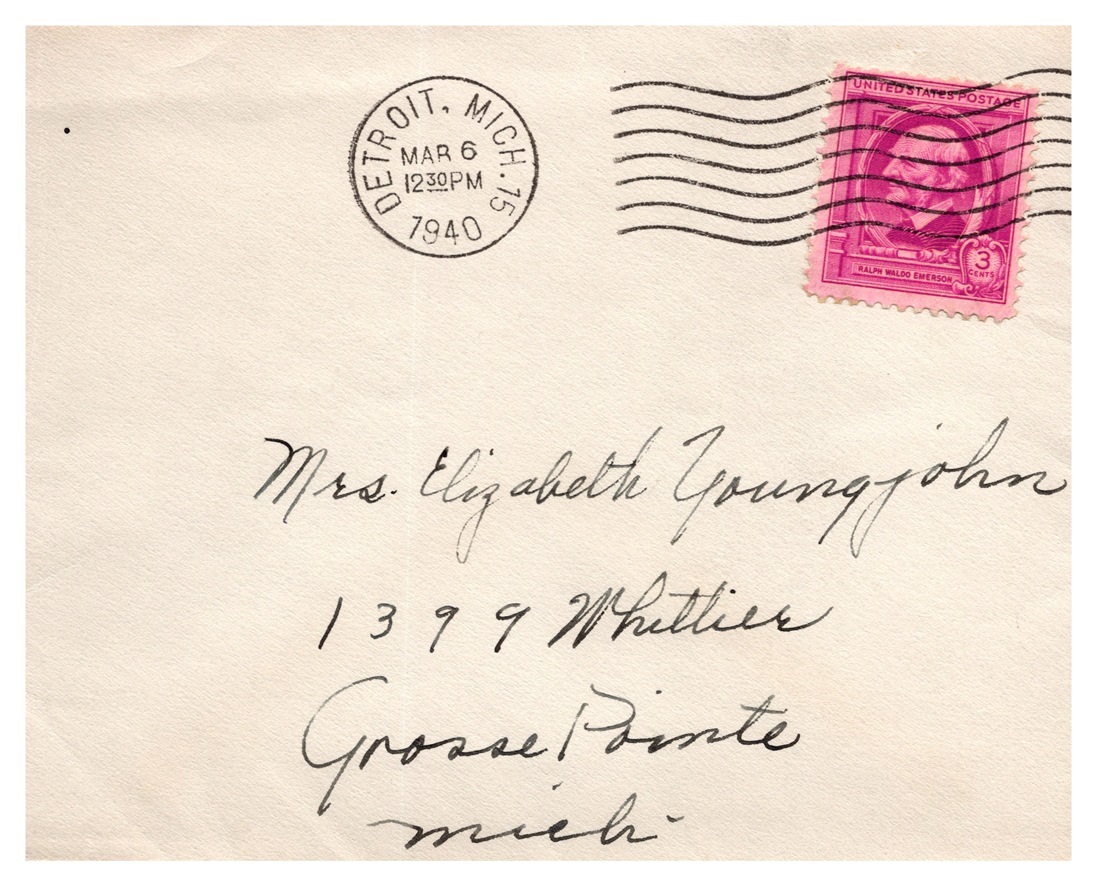 DETROIT, MICH. 15
MAR 6
12 30 PM
1940
UNITED STATES POSTAGE
3
CENTS
RALPH WALDO EMERSON
Mrs. Elizabeth Youngjohn
1399 Whittier
Grosse Pointe
Mich.